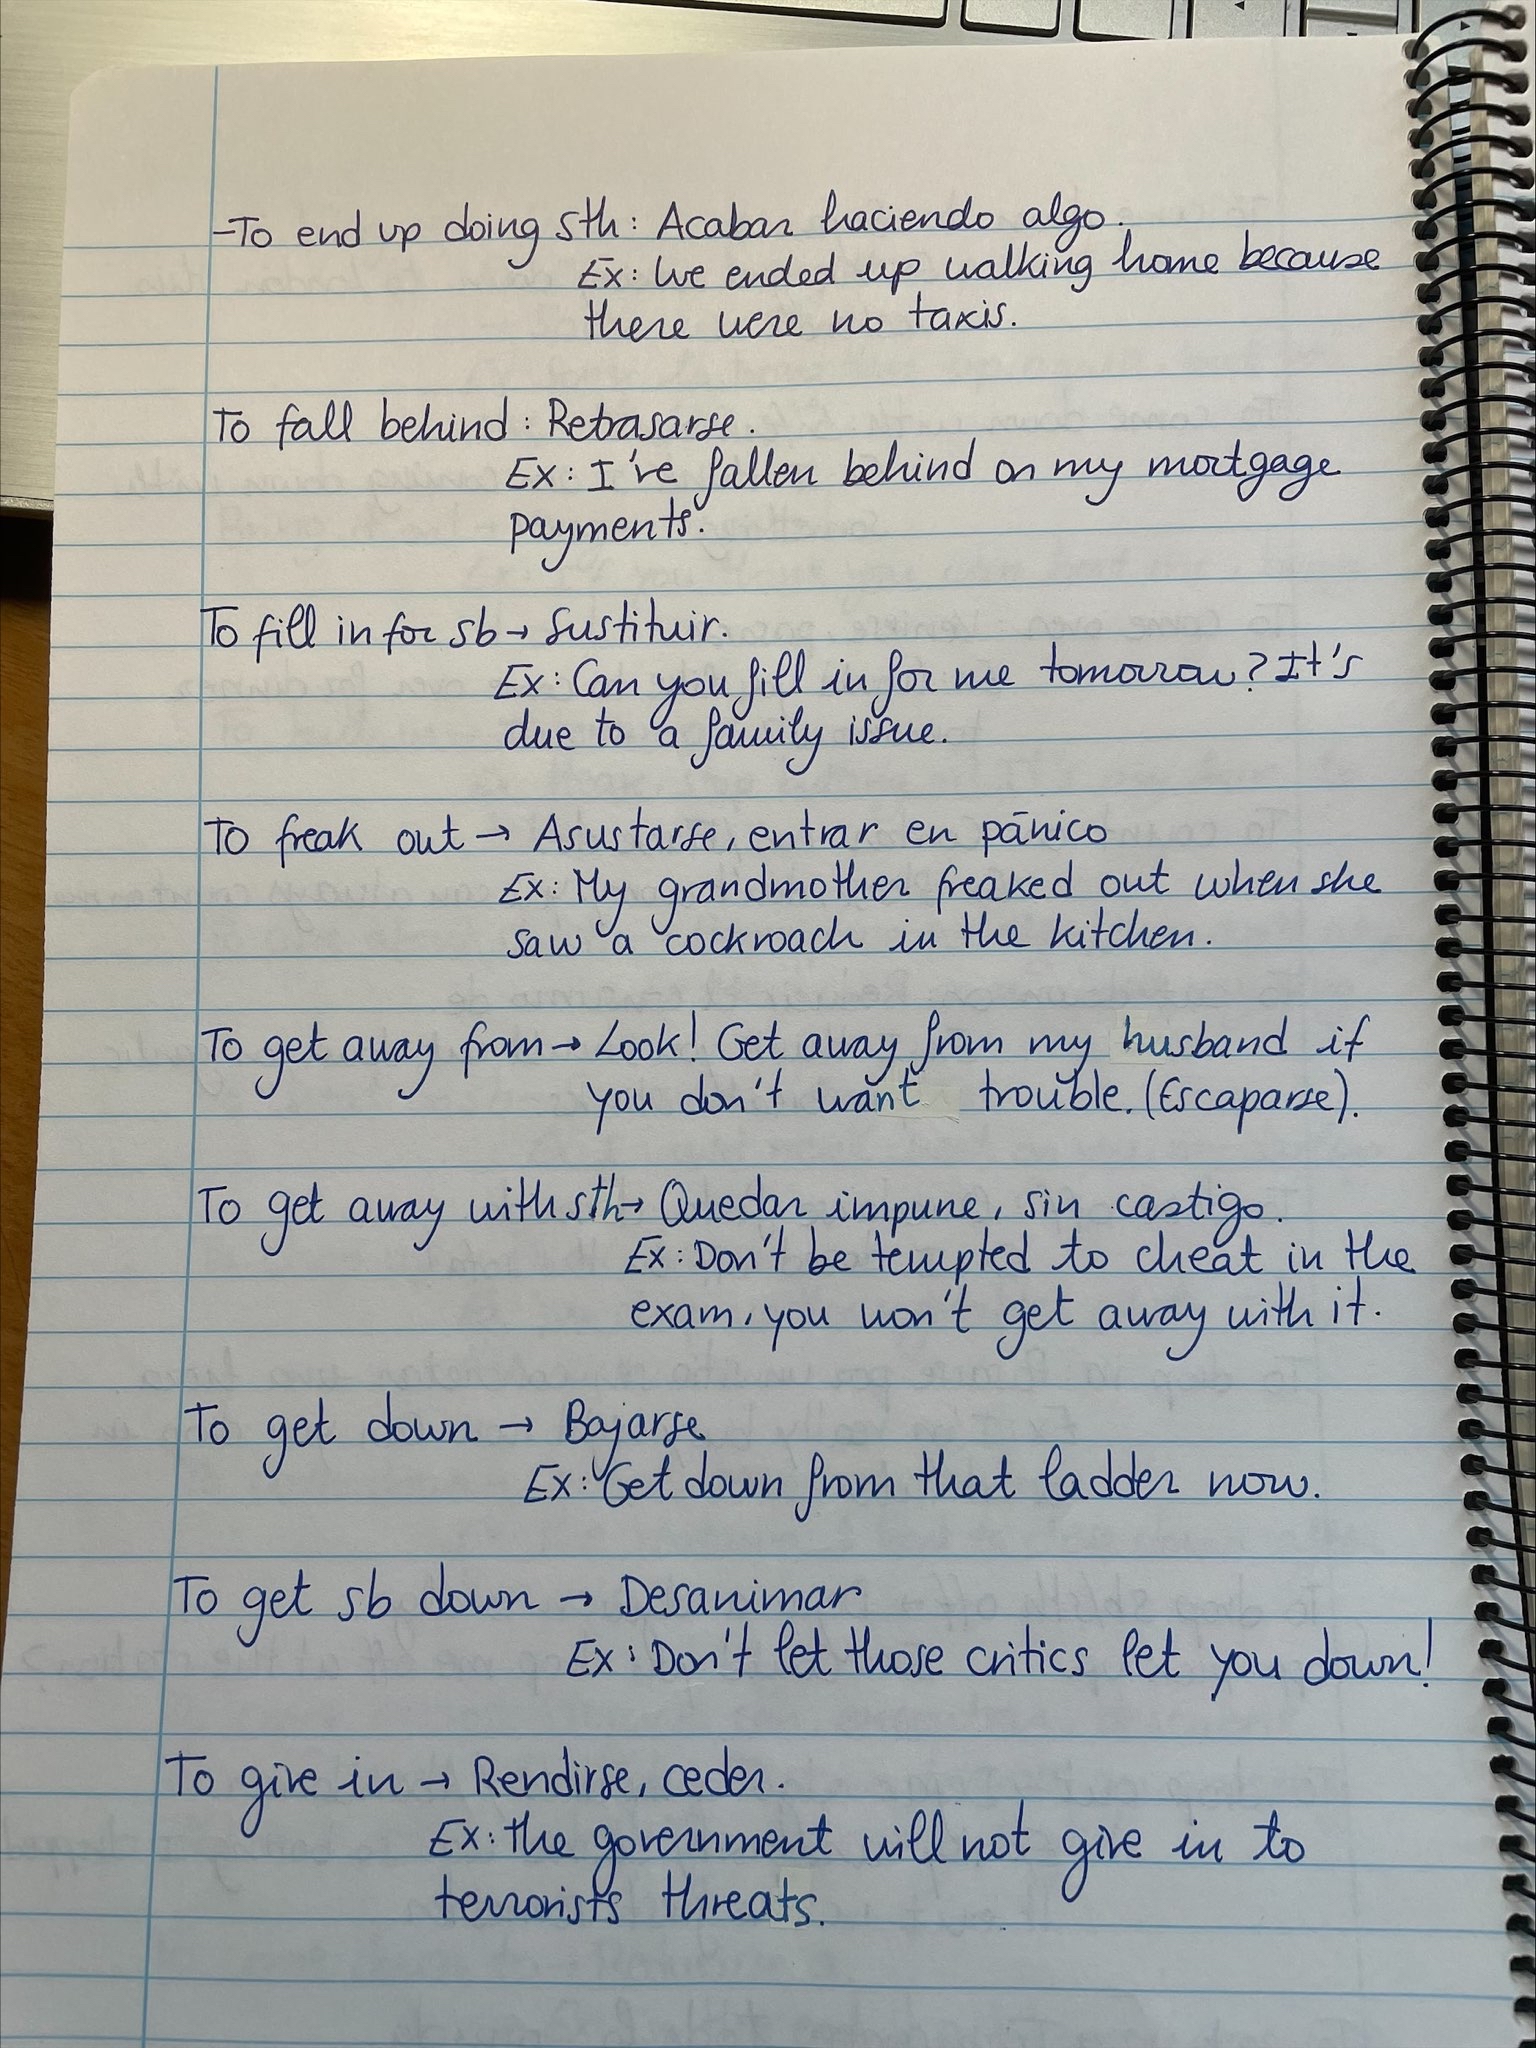 -To end up doing sth: Acabar haciendo algo.
Ex: We ended up walking home because
there were no taxis.
To fall behind: Retrasarse.
Ex: I've fallen behind on my mortgage
payments.
To fill in for sb → Sustituir.
Ex: Can you fill in for me tomorrow? It's
due to a family issue.
To freak out → Asustarse, entrar en pánico
Ex: My grandmother freaked out when she
saw a cockroach in the kitchen.
To get away from → Look! Get away from my husband if
you don't want trouble. (Escaparse).
To get away with sth → Quedar impune, sin castigo.
Ex: Don't be tempted to cheat in the
exam, you won't get away with it.
To get down → Bajarse
Ex: Get down from that ladder now.
To get sb down → Desanimar
Ex: Don't let those critics let you down!
To give in → Rendirse, ceder.
Ex: the government will not give in to
terrorists threats.